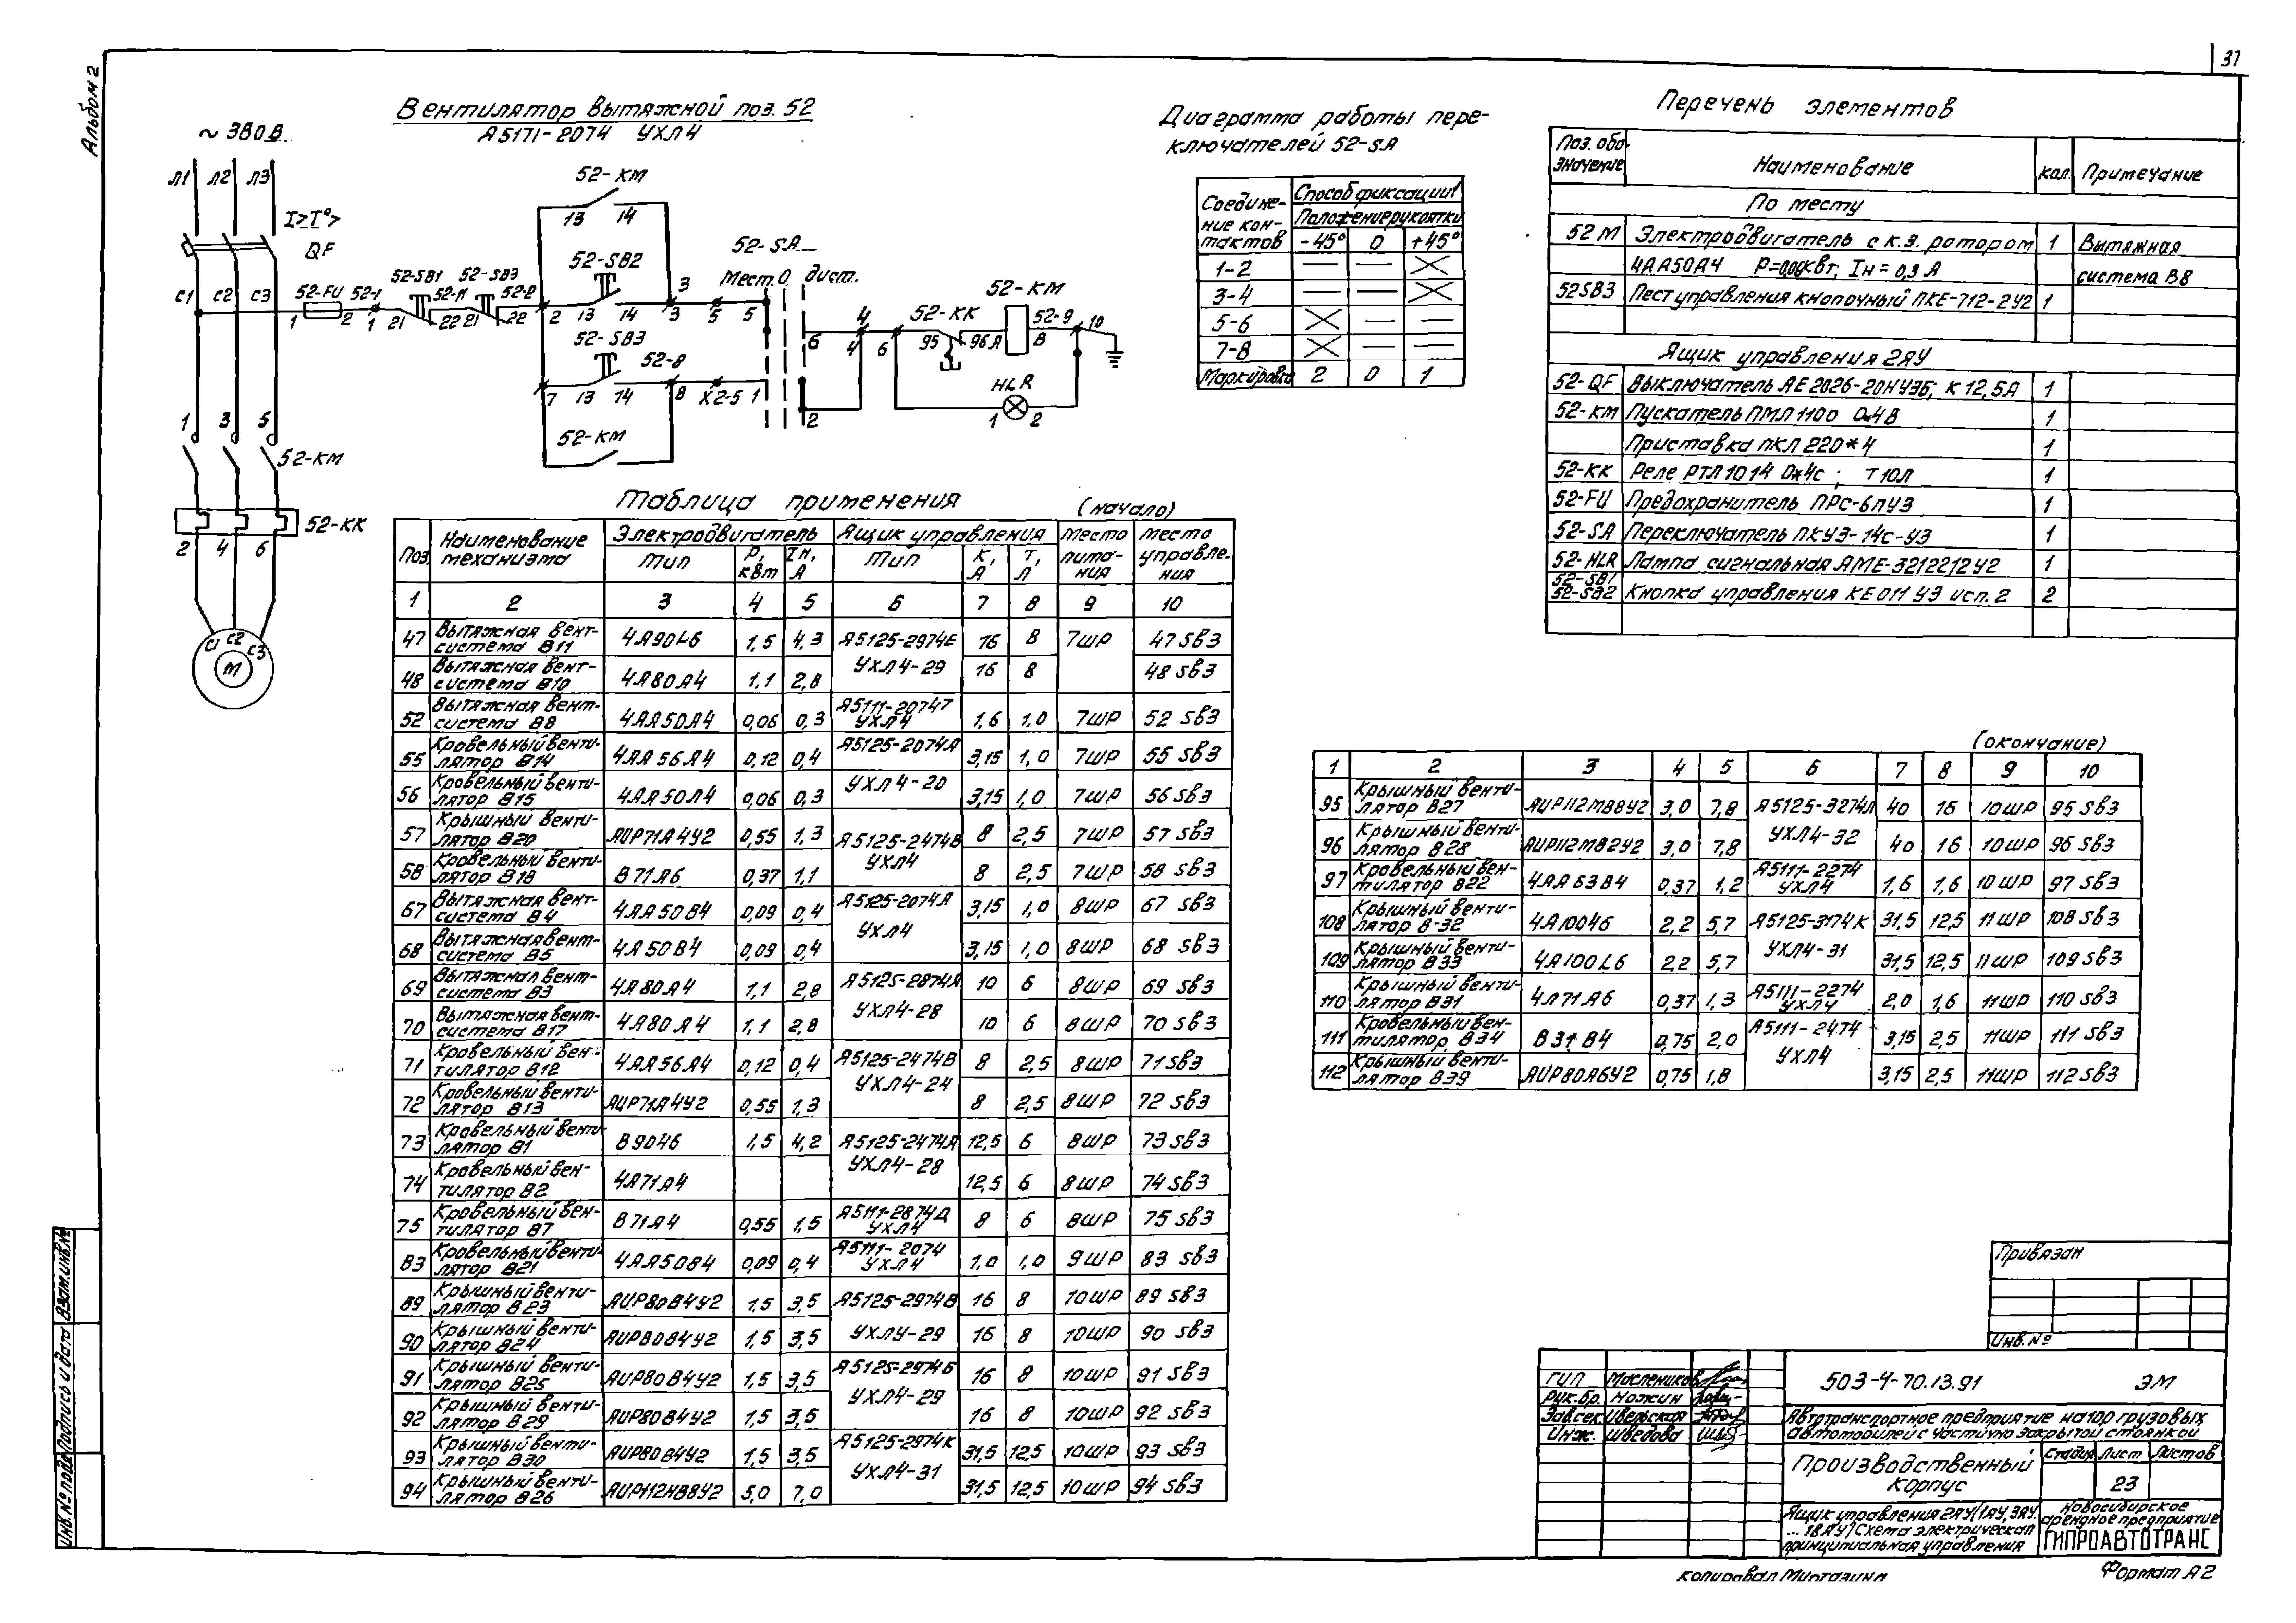 37
Альбом 2
Вентилятор вытяжной поз. 52
Я5171-2074 УХЛ4
~ 380 В
Л1 Л2 Л3
I> I°>
QF
С1 С2 С3
52-FU 52-1 52-SB1 52-11 52-SB3 52-2
1 2 1 21 22 21 22 2
52-КМ
13 14
52-SB2
13 14 3 3 5 5
52-SB3
7 13 14 52-8 8 Х2-5 1
52-КМ
52-SA
Мест. 0 дист.
6 4 4 6 2
52-КК
95 96 А
52-КМ
52-9 В 10
HLR
1 2
1 3 5
52-КМ
52-КК
2 4 6
С1 С2 С3
М
Диаграмма работы пере-
ключателей 52-SA
Соедине-
ние кон-
тактов
Способ фиксации
Положение рукоятки
-45° 0 +45°
1-2 — — ×
3-4 — — ×
5-6 × — —
7-8 × — —
Маркировка 2 0 1
Перечень элементов
Поз. обо-
значение Наименование кол. Примечание
По месту
52 М Электродвигатель с к.з. ротором 1 Вытяжная
4АА50А4 Р=0,06кВт; Iн = 0,3 А система В8
52SB3 Пост управления кнопочный ПКЕ-712-2У2 1
Ящик управления 2ЯУ
52-QF Выключатель АЕ 2026-20НУ3Б; К 12,5А 1
52-КМ Пускатель ПМЛ 1100 0*4В 1
Приставка ПКЛ 220*4 1
52-КК Реле РТЛ 1014 0*4с ; Т 10Л 1
52-FU Предохранитель ПРС-6ПУ3 1
52-SA Переключатель ПКУ3-14с-У3 1
52-HLR Лампа сигнальная АМЕ-3212212У2 1
52-SB1
52-SB2 Кнопка управления КЕ011 У3 исп. 2 2
Таблица применения (начало)
Поз. Наименование механизма Электродвигатель Ящик управления Место питания Место управления
Тип Р, кВт Iн, А Тип К, А Т, Л
1 2 3 4 5 6 7 8 9 10
47 Вытяжная вент-система В11 4А90L6 1,5 4,3 Я5125-2974Е 16 8 7ШР 47 SВ3
48 Вытяжная вент-система В10 4А80А4 1,1 2,8 УХЛ4-29 16 8 48 SВ3
52 Вытяжная вент-система В8 4АА50А4 0,06 0,3 Я5111-2074Т УХЛ4 1,6 1,0 7ШР 52 SВ3
55 Кровельный венти-лятор В14 4АА56А4 0,12 0,4 Я5125-2074А 3,15 1,0 7ШР 55 SВ3
56 Кровельный венти-лятор В15 4АА50А4 0,06 0,3 УХЛ4-20 3,15 1,0 7ШР 56 SВ3
57 Крышный венти-лятор В20 АИР71А4У2 0,55 1,3 Я5125-2474В 8 2,5 7ШР 57 SВ3
58 Кровельный венти-лятор В18 В71А6 0,37 1,1 УХЛ4 8 2,5 7ШР 58 SВ3
67 Вытяжная вент-система В4 4АА50В4 0,09 0,4 Я5125-2074А 3,15 1,0 8ШР 67 SВ3
68 Вытяжная вент-система В5 4А50В4 0,09 0,4 УХЛ4 3,15 1,0 8ШР 68 SВ3
69 Вытяжная вент-система В3 4А80А4 1,1 2,8 Я5125-2874А 10 6 8ШР 69 SВ3
70 Вытяжная вент-система В17 4А80А4 1,1 2,8 УХЛ4-28 10 6 8ШР 70 SВ3
71 Кровельный вен-тилятор В12 4АА56А4 0,12 0,4 Я5125-2474В 8 2,5 8ШР 71 SВ3
72 Кровельный венти-лятор В13 АИР71А4У2 0,55 1,3 УХЛ4-24 8 2,5 8ШР 72 SВ3
73 Кровельный венти-лятор В1 В90L6 1,5 4,2 Я5125-2474А 12,5 6 8ШР 73 SВ3
74 Кровельный вен-тилятор В2 4А71А4 УХЛ4-28 12,5 6 8ШР 74 SВ3
75 Кровельный вен-тилятор В7 В71А4 0,55 1,5 Я5111-2874Д УХЛ4 8 6 8ШР 75 SВ3
83 Кровельный венти-лятор В21 4АА50В4 0,09 0,4 Я5111-2074 УХЛ4 1,0 1,0 9ШР 83 SВ3
89 Крышный венти-лятор В23 АИР80В4У2 1,5 3,5 Я5125-2974В 16 8 10ШР 89 SВ3
90 Крышный венти-лятор В24 АИР80В4У2 1,5 3,5 УХЛУ-29 16 8 10ШР 90 SВ3
91 Крышный венти-лятор В25 АИР80В4У2 1,5 3,5 Я5125-2974Б 16 8 10ШР 91 SВ3
92 Крышный венти-лятор В29 АИР80В4У2 1,5 3,5 УХЛ4-29 16 8 10ШР 92 SВ3
93 Крышный венти-лятор В30 АИР80В4У2 1,5 3,5 Я5125-2974К 31,5 12,5 10ШР 93 SВ3
94 Крышный венти-лятор В26 АИР112МВ8У2 5,0 7,0 УХЛ4-31 31,5 12,5 10ШР 94 SВ3
(окончание)
1 2 3 4 5 6 7 8 9 10
95 Крышный венти-лятор В27 АИР112МВ8У2 3,0 7,8 Я5125-3274Л 40 16 10ШР 95 SВ3
96 Крышный венти-лятор В28 АИР112МВ2У2 3,0 7,8 УХЛ4-32 40 16 10ШР 96 SВ3
97 Кровельный вен-тилятор В22 4АА63В4 0,37 1,2 Я5111-2274 УХЛ4 1,6 1,6 10ШР 97 SВ3
108 Крышный венти-лятор В-32 4А100L6 2,2 5,7 Я5125-3174К 31,5 12,5 11ШР 108 SВ3
109 Крышный венти-лятор В33 4А100L6 2,2 5,7 УХЛ4-31 31,5 12,5 11ШР 109 SВ3
110 Крышный венти-лятор В31 4А71А6 0,37 1,3 Я5111-2274 УХЛ4 2,0 1,6 11ШР 110 SВ3
111 Кровельный вен-тилятор В34 В31В4 0,75 2,0 Я5111-2474 3,15 2,5 11ШР 111 SВ3
112 Крышный венти-лятор В39 АИР80А6У2 0,75 1,8 УХЛ4 3,15 2,5 11ШР 112 SВ3
Привязан
Инв. №
ГИП Маслеников
Рук.бр. Ножин
Зав.сек. Цвельская
Инж. Шведова
503-4-70.13.91 ЭМ
Автотранспортное предприятие на 110 грузовых
автомобилей с частично закрытой стоянкой
Производственный
корпус
Стадия Лист Листов
23
Ящик управления 2ЯУ (1ЯУ, 3ЯУ
... 18ЯУ) Схема электрическая
принципиальная управления
Новосибирское
арендное предприятие
ГИПРОАВТОТРАНС
Копировал Миртазина
Формат А2
Инв. № подл. Подпись и дата Взам. инв. №